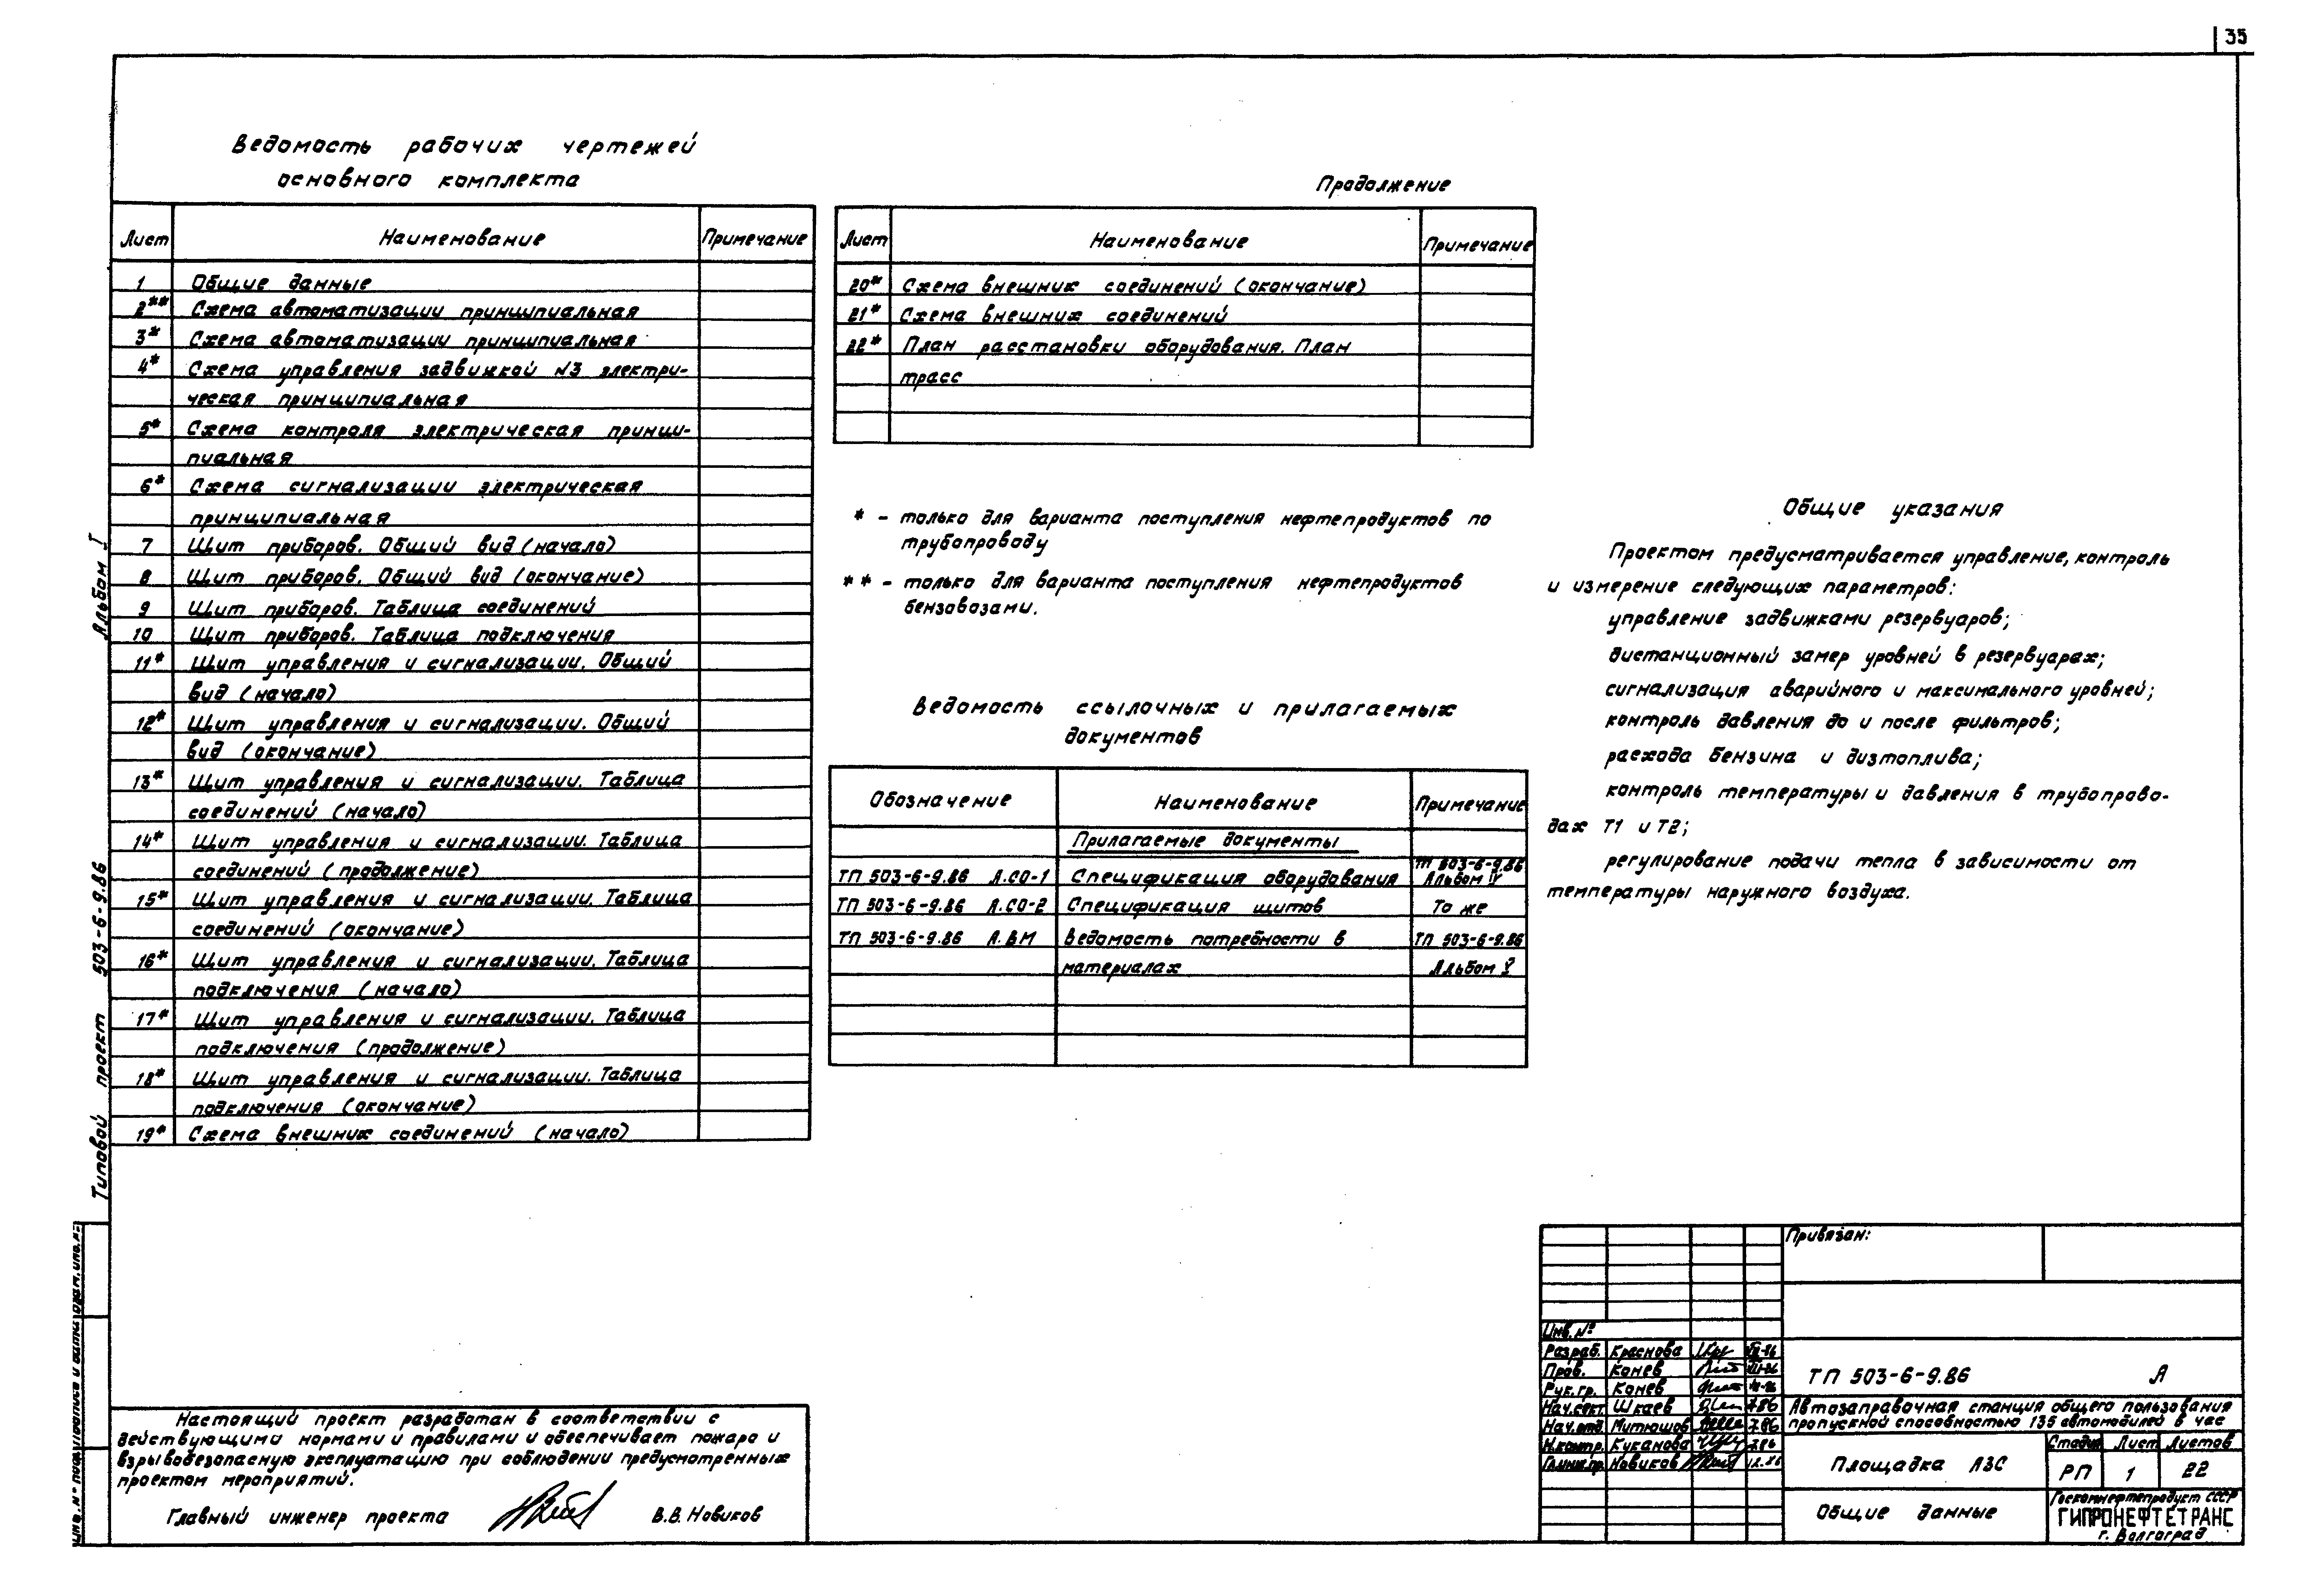 35
Ведомость рабочих чертежей
основного комплекта
Лист Наименование Примечание
1 Общие данные
2** Схема автоматизации принципиальная
3* Схема автоматизации принципиальная
4* Схема управления задвижкой №3 электри-
ческая принципиальная
5* Схема контроля электрическая принци-
пиальная
6* Схема сигнализации электрическая
принципиальная
7 Щит приборов. Общий вид (начало)
8 Щит приборов. Общий вид (окончание)
9 Щит приборов. Таблица соединений
10 Щит приборов. Таблица подключения
11* Щит управления и сигнализации. Общий
вид (начало)
12* Щит управления и сигнализации. Общий
вид (окончание)
13* Щит управления и сигнализации. Таблица
соединений (начало)
14* Щит управления и сигнализации. Таблица
соединений (продолжение)
15* Щит управления и сигнализации. Таблица
соединений (окончание)
16* Щит управления и сигнализации. Таблица
подключения (начало)
17* Щит управления и сигнализации. Таблица
подключения (продолжение)
18* Щит управления и сигнализации. Таблица
подключения (окончание)
19* Схема внешних соединений (начало)
Продолжение
Лист Наименование Примечание
20* Схема внешних соединений (окончание)
21* Схема внешних соединений
22* План расстановки оборудования. План
трасс
* - только для варианта поступления нефтепродуктов по
трубопроводу
** - только для варианта поступления нефтепродуктов
бензовозами.
Ведомость ссылочных и прилагаемых
документов
Обозначение Наименование Примечание
Прилагаемые документы
ТП 503-6-9.86 А.СО-1 Спецификация оборудования ТП 503-6-9.86 Альбом IV
ТП 503-6-9.86 А.СО-2 Спецификация щитов То же
ТП 503-6-9.86 А.ВМ Ведомость потребности в ТП 503-6-9.86
материалах Альбом V
Общие указания
Проектом предусматривается управление, контроль
и измерение следующих параметров:
управление задвижками резервуаров;
дистанционный замер уровней в резервуарах;
сигнализация аварийного и максимального уровней;
контроль давления до и после фильтров;
расхода бензина и дизтоплива;
контроль температуры и давления в трубопрово-
дах Т1 и Т2;
регулирование подачи тепла в зависимости от
температуры наружного воздуха.
Альбом I
Типовой проект 503-6-9.86
Инв. № подл. Подпись и дата Взам. инв. №
Настоящий проект разработан в соответствии с
действующими нормами и правилами и обеспечивает пожаро и
взрывобезопасную эксплуатацию при соблюдении предусмотренных
проектом мероприятий.
Главный инженер проекта В.В. Новиков
Привязан:
Инв. №
Разраб. Краснова VII-86
Пров. Конев VII-86
Рук. гр. Конев VII-86
Нач. сект. Шкаев 7.86
Нач. отд. Митюшов 7.86
Н. контр. Куканова 7.86
Гл. инж. пр. Новиков 12.86
ТП 503-6-9.86 А
Автозаправочная станция общего пользования
пропускной способностью 135 автомобилей в час
Площадка АЗС
Стадия Лист Листов
РП 1 22
Общие данные
Госкомнефтепродукт СССР
ГИПРОНЕФТЕТРАНС
г. Волгоград